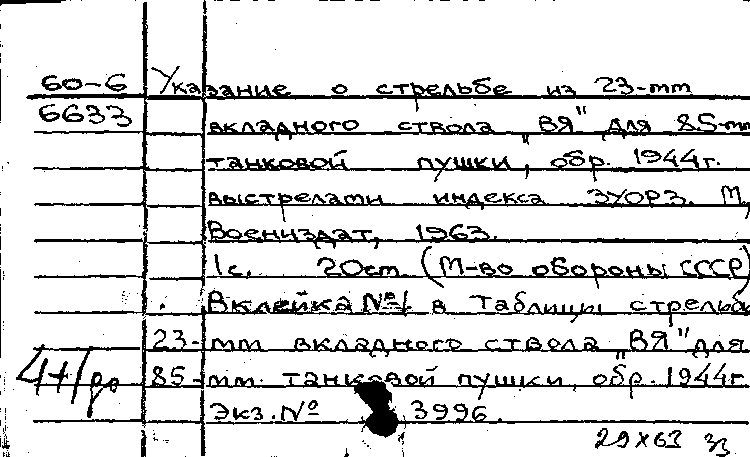 60-6 Указание о стрельбе из 23-мм
6633 вкладного ствола „ВЯ" для 85-мм
танковой пушки, обр. 1944г.
выстрелами индекса ЗУОРЗ. М,
Воениздат, 1963.
1с. 20см (М-во обороны СССР)
Вклейка №1 в Таблицы стрельбы
23-мм вкладного ствола „ВЯ" для
85-мм танковой пушки, обр. 1944г.
Экз. № 3996.
29 X 63